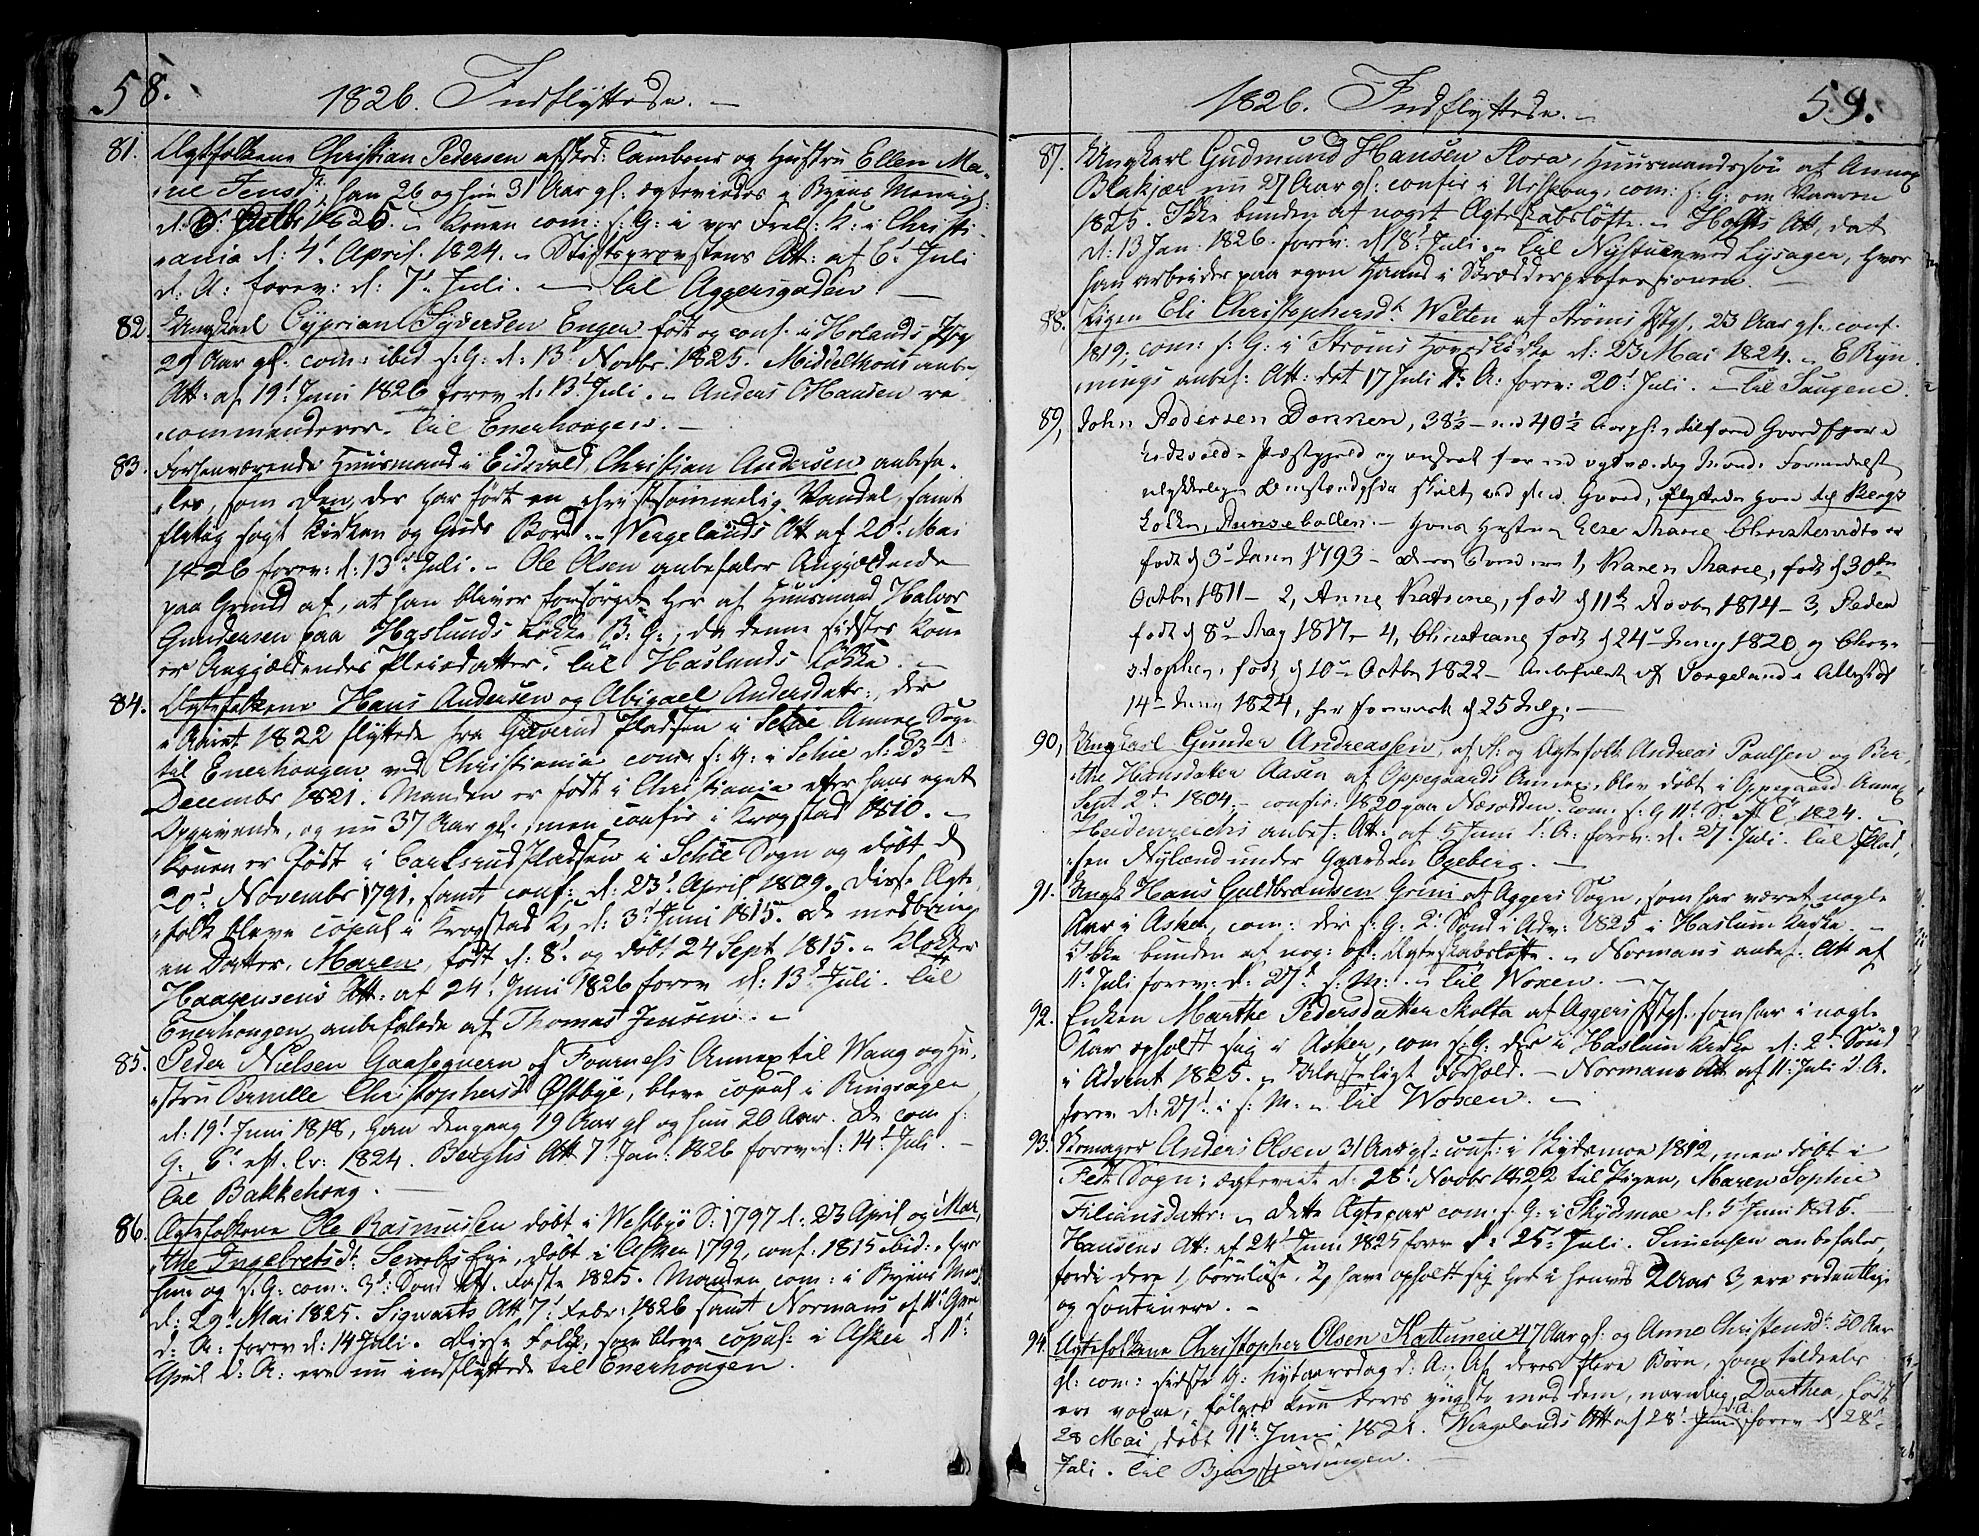 58.
1826. Indflyttede. –
81. Ægtefolkene Christian Pedersen afsked: Tambour og Hustru Ellen Ma-
rie Jensd:, han 26 og hun 31 Aar gl: ægteviedes i Byens Menigh:
1825. Konen com: s: G: i vor Frels: K: i Christi-
ania d: 4 April 1824. Stiftsprovstens Att: af 6 Juli
d: A: forev: d: 7 Juli. – til Aggersgaden. –
82. Ungkarl Cyprian Syversen Engen født og conf. i Hølands
29 Aar gl. com: ibid s: G: d: 13 Novbr 1825. Middelthons anbe-
Att: af 19 Juni 1826 forev d: 13 Juli. – Anders Hansen re-
commenderer. til Enerhougen. –
83. Forhenværende Huusmand i Eidsvold Christian Andersen anbefa-
les, som den, der har ført en christsømmelig Vandel, samt
flittig søgt Kirken og Guds Bord. Wergelands Att af 20 Mai
1826 forev: d: 13 Juli. – Ole Olsen anbefaler Angjældende
paa Grund af, at han bliver forsørget her af Huusmand Halvor
Gundersen paa Haslunds Løkke B: G:, da denne sidstes Kone
er Angjældendes Pleiedatter. til Haslunds Løkke. –
84. Ægtefolkene Hans Andersen og Abigael Andersdatr:, der
i Aaret 1822 flyttede fra Pladsen i Schie Annex Sogn
til Enerhougen ved Christiania com: s: G: i Schie d: 23
December 1821. Manden er født i Christiania efter hans eget
Opgivende, og nu 37 Aar gl., men confir i Krogstad 1810. –
Konen er født i Pladsen i Schie Sogn og døbt d
20 Novembr 1791, samt conf: d: 23 April 1809. Disse Ægte-
folk bleve copul i Krogstad K, d: 3 Juni 1815. De medbring
en Datter, Maren, født d: 8 og døbt 24 Sept 1815. – Klokker
Haagensens Att: af 24 Juni 1826 forev d: 13 Juli. til
Enerhougen anbefalede af Thomas Jensen. –
85. Peder Nielsen Gaasequern af Fourness Annex til Wang og Hu-
stru Pernille Christophersd Østbye, bleve copul i Ringsager
d: 19 Juni 1818, han dengang 19 Aar gl og hun 20 Aar. De com s:
G: 6 eft. 1824. Berghs Att 7 Jan: 1826 forev d: 14 Juli. –
til Bakkehoug. –
86. Ægtefolkene Ole Rasmussen døbt i Westbye S: 1797 d: 23 April og Mar-
the Ingebretsd: Sembs Eie, døbt i Asker 1792, conf. 1815 ibid:, hvor
hun og s: G: com: 3 Sønd i Faste 1825. Manden com: i Byens Men
d: 29 Mai 1825. Sigwarts Att 7 Febr: 1826 samt Normans af 11
d: A: forev d: 14 Juli. Disse Folk, som bleve copul: i Asker d 11
April d: A: ere nu indflyttede til Enerhougen.
1826. Indflyttede. – 59.
87. Ungkarl Gudmund Hansen Flora, Huusmandssøn af Annex
Blakjær nu 27 Aar gl: confir i Urskoug, com: s: G: om Vaaren
1825. Ikke bunden af noget Ægteskabsløfte. – Holsts Att, dat
d: 13 Jan: 1826. forev. d 18 Juli. – til Nystuen ved Lysager, hvor
han arbeider paa egen Haand i Skrædderprofessionen. –
88. Pigen Eli Christophersd Welten af Strøms Pgl. 23 Aar gl. conf.
1819; com: s: G: i Strøms Hovedkirke d: 23 Mai 1824. – E Ryn-
nings anbef: Att: det 17 Juli d: A: forev: 20 Juli. – til Saugene.
89, John Pedersen Dønnen, 38½ – 40½ Aar
Eidsvolds Præstegjeld og
Gaard, flyttede hen til Bergs
Løkken, – Hans Hustru Else Marie Christensdtr er
født d 3 Janr 1793 – deres Børn ere 1, Karen Marie, født d 30te
Octbr 1811 – 2, Anne Katrine, født d 11te Novbr 1814 – 3, Peder
født d 8 May 1817 – 4, Christiane født d 24 Juny 1820 og Chri-
stopher, født d 10 Octbr 1822 – Anbefalet af Wergeland Attest af
14 Juny 1824, her forevist d 25 July. –
90, Ungkarl Gunder Andreassen, af S: og Ægtefolk Andreas Poulsen og Ber-
the Hansdatter Aasen af Oppegaards Annex, blev døbt i Oppegaard Annex
Sept 2 1804 – confir: 1820 paa Næsodden. com: s: G 11 S: eft T, 1824. –
Heidenreichs anbef: Att: af 5 Juni d: A: forev: d. 27 Juli. til Plad-
sen Nyland under Gaarden Ogeberg. –
91. Ungk Hans Guldbrandsen Grini af Aggers Sogn, som har været nogle
Aar i Asker, com: der s: G. 2 Sønd i Adv: 1825 i Haslum Kirke. –
Ikke bunden af nog: Ægteskabsløfte. – Normans anbef: Att af
11 Juli forev: d: 27 s: M: – til Woxen. –
92. Enken Marthe Pedersdatter Skolta af Aggers Pgl. som har i nogle
Aar opholdt sig i Asker, com s: G: der i Haslum Kirke d: 2 Sønd
i Advent 1825. – Forhold. – Normans Att af 11 Juli d: A.
forev d: 27 i s: M: – til Woxen. –
93. Skomager Anders Olsen 31 Aar gl: conf: i Skydsmoe 1812, men døbt i
Fet Sogn; ægteviet d: 28 Novbr 1822 til Pigen, Maren Sophie
Filiansdatr: – dette Ægtepar com: s: G: i Skydsmoe d: 5 Juni 1825. –
Hansens Att: af 24 Juni 1825 forev d: 25 Juli. Simensen anbefaler,
fordi dere 1, børnløse. 2, have opholdt sig her i henved 2 Aar 3, ere ordentlige
og –
94. Ægtefolkene Christopher Olsen Kattuneie 47 Aar gl: og Anne Christensd: 50 Aar
gl: com: sidste G: Nytaarsdag d: A:. Af deres flere Børn, som tildeels
ere voxne, følger kun deres yngste med dem, navnlig, Dorthea, født
28 Mai, døbt 11 Juni 1821. Wergelands Att af 28 Juni d: A: forev d 28
Juli. til Bjergfjerdingen. –